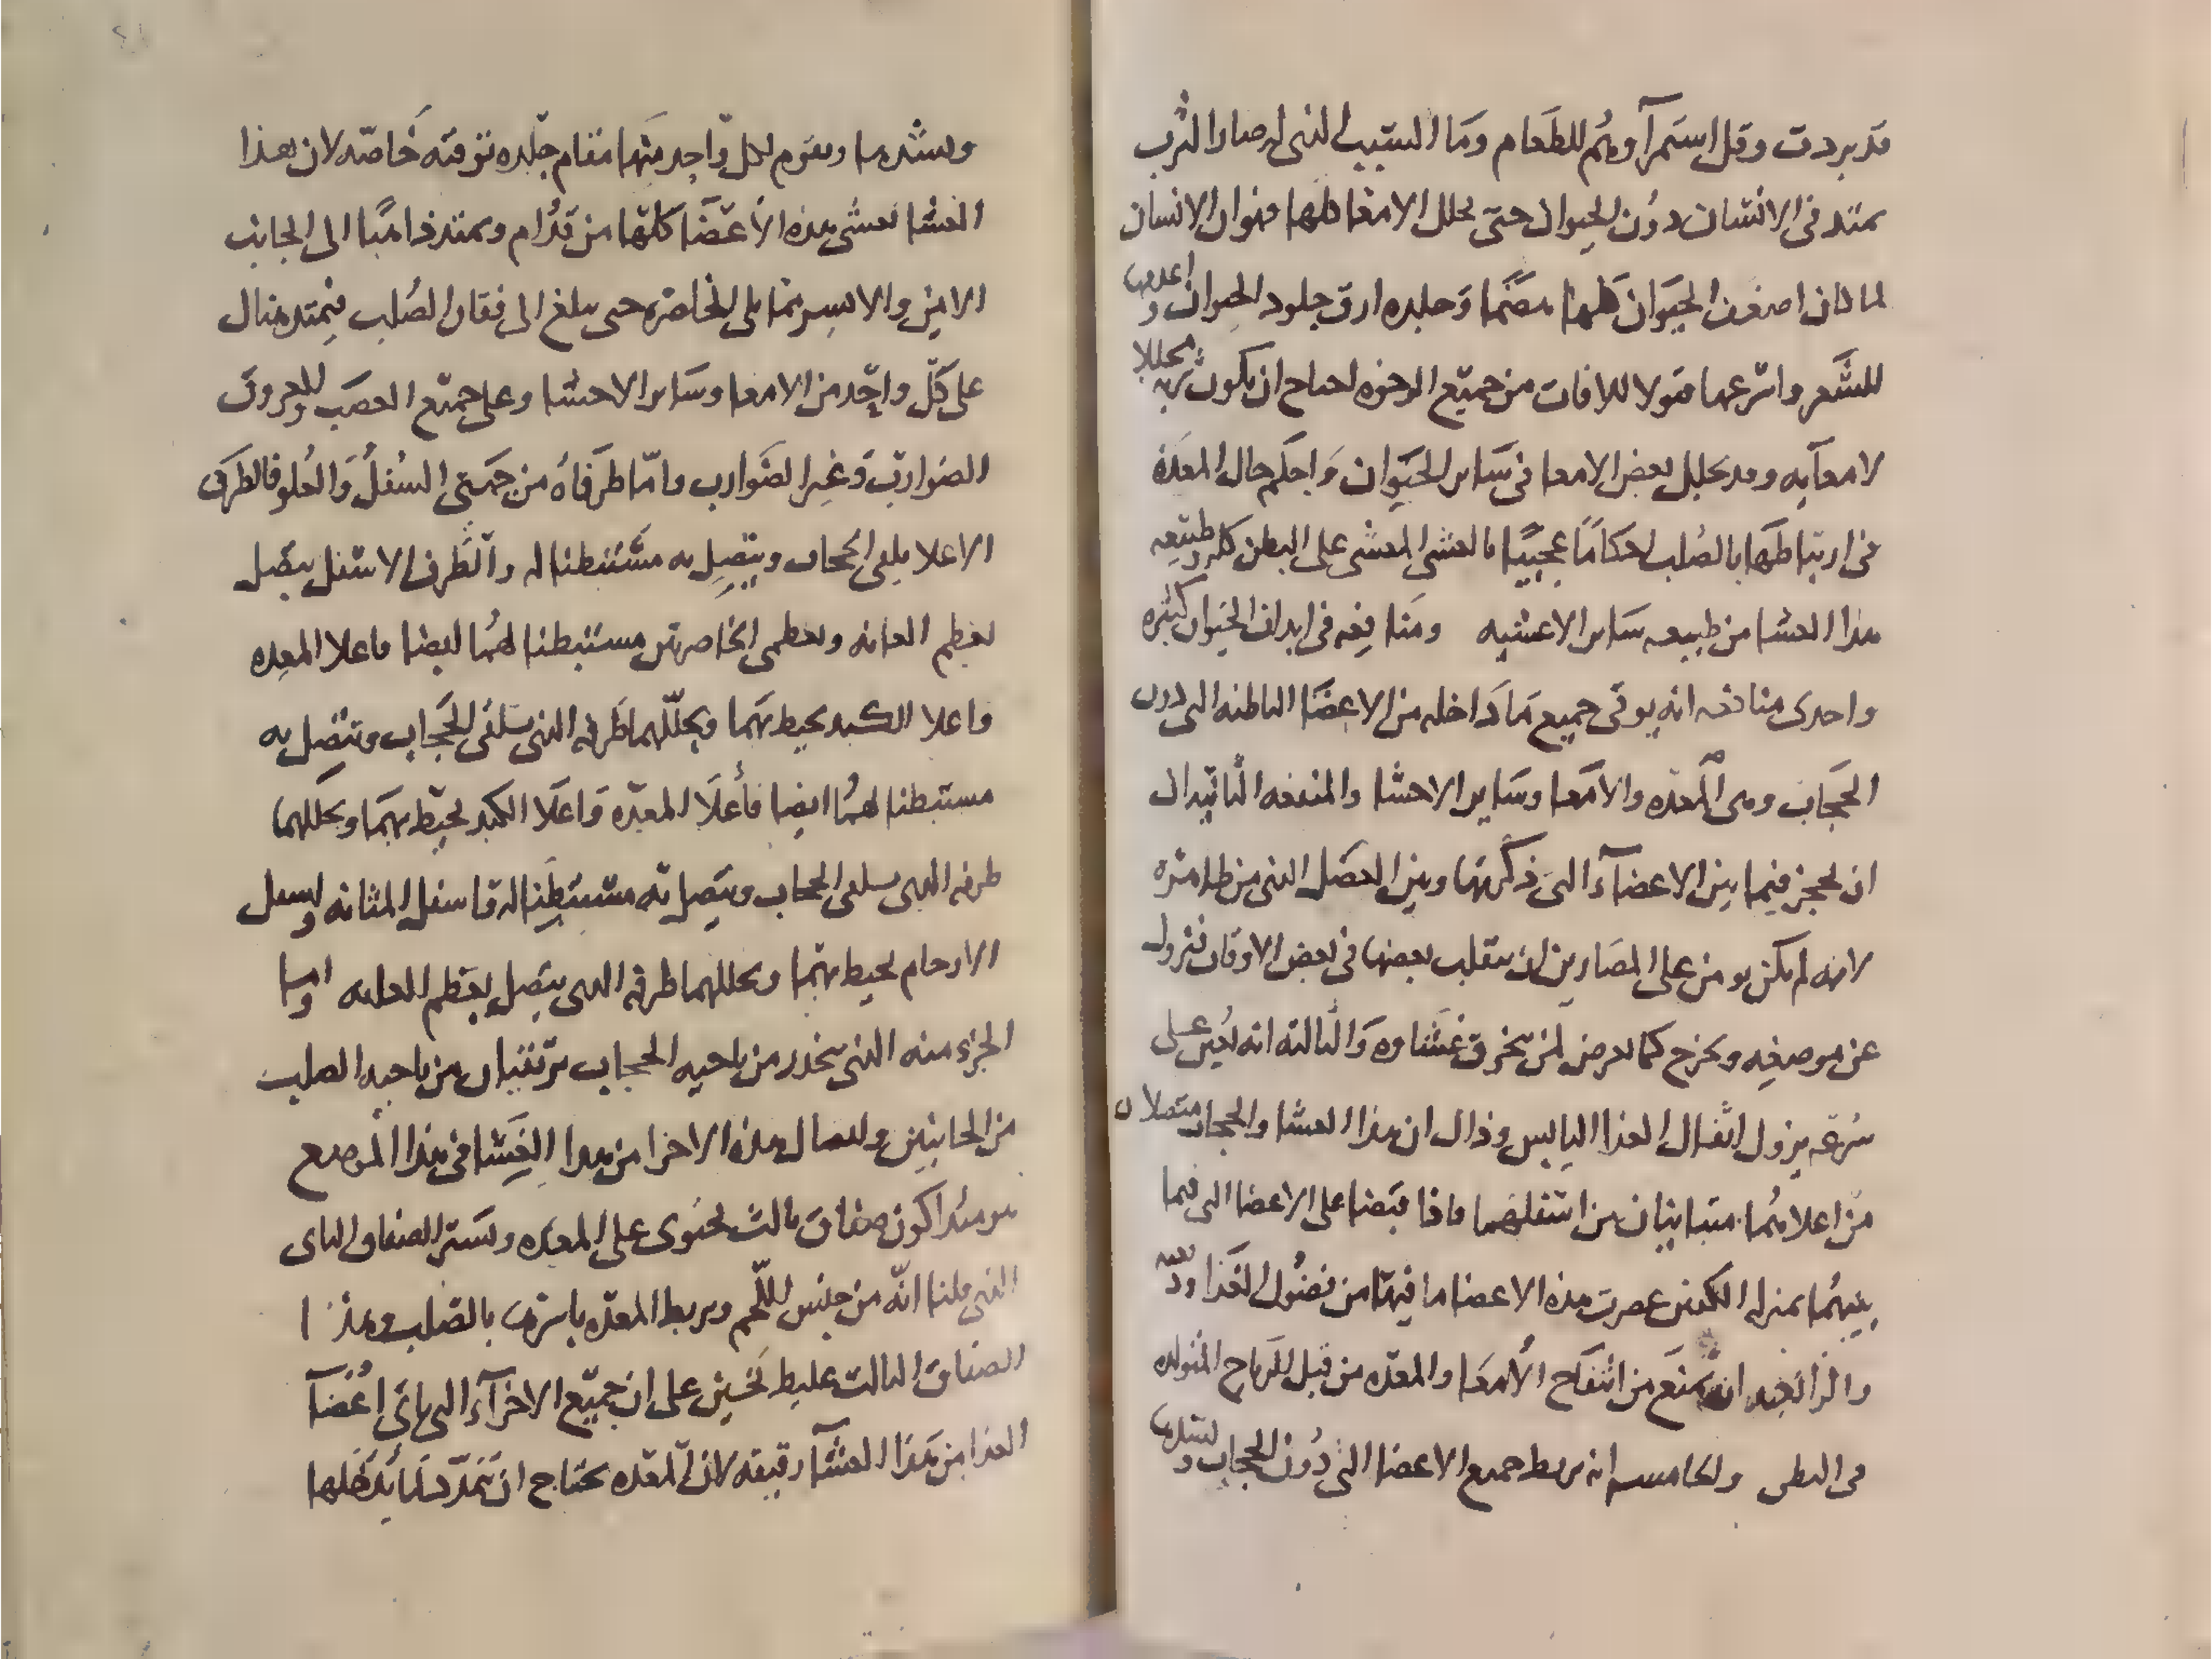 قد بردت وقل استمرآوهم للطعام وما السبب الذى له صار الثرب
يمتد فى الانسان دون الحيوان حتى يجلل الامعا كلها فهو ان الانسان
لما كان اضعف الحيوان كلها هضما وجلده ارق جلود الحيوان واعدمها
للشعر واسرعها قبولا للافات من جميع الوجوه احتاج ان يكون ثربه مجللا
لامعآيه وقد يجلل بعض الامعا فى ساير الحيوان واحكم حال المعدة
فى ارتباطها بالصلب احكاما عجيبا بالغشى المغشى على البطن كله وطبيعه
هذا الغشا من طبيعه ساير الاغشيه ومنافعه فى ابدان الحيوان كثيره
واحدى منافعه انه يوقى جميع ما داخله من الاعضا الباطنه التى دون
الحجاب وهى المعده والامعا وساير الاحشا والمنفعه الثانيه ان
ان يحجز فيما بين الاعضآء التى ذكرتها وبين العضل الذى من ظاهره
لانه لم يكن يومن على المصارين ان ينقلب بعضها فى بعض الاوقات فتزول
عن موضعه ويخرج كما يعرض لمن يخرق غشاوه والثالثه انه يعين على
سرعه نزول اثفال الغذا اليابس وذلك ان هذا الغشا والحجاب متصلان
من اعلاهما متباينان من اسفلهما فاذا قبضا على الاعضا التى فيما
بينهما بمنزله الكفين عصرت هذه الاعضا ما فيها من فضول الغذا ودفعته
والرابعه انه يمنع من انتفاخ الامعا والمعده من قبل الرياح المتولده
فى البطن والخامسه انه يربط جميع الاعضا التى دون الحجاب ويسترها
ويشدها ويقوم لكل واحد منها مقام جلده توقيه خاصه لان هذا
الغشا يغشى هذه الاعضا كلها من قدام ويمتد ذاهبا الى الجانب
الايمن والايسر مما يلى الخاصره حتى يبلغ الى فقار الصلب فيمتد هناك
على كل واحد من الامعا وساير الاحشا وعلى جميع العصب والعروق
الضوارب وغير الضوارب واما طرفاه من جهتى السفل والعلو فالطرف
الاعلا يلقى الحجاب ويتصل به مستبطنا له والطرف الاسفل يتصل
بعظم العانه وبعظمى الخاصرتين مستبطنا لهما ايضا فاعلا المعده
واعلا الكبد يحيط بهما ويجللهما طرفه الذى يلقى الحجاب ويتصل به
مستبطنا لهما ايضا فأعلا المعده واعلا الكبد يحيط بهما ويجللهما
طرفه الذى يلقى الحجاب ويتصل به مستبطنا له فاسفل المثانه واسفل
الارحام يحيط بهما ويجللهما طرفه الذى يتصل بعظم العانه واما
الجزء منه الذى ينحدر من ناحيه الحجاب يرتقيان من ناحيه الصلب
من الجانبين واتصال هذه الاجزا من هذا الغشا فى هذا الموضع
هو مبدا كون صفاق ثالث يحتوى على المعده ويستر الصفاق الثانى
الذى قلنا انه من جنس اللحم ويربط المعده باسرها بالصلب وهذا
الصفاق الثالث غليظ ثخين على ان جميع الاجزآء التى تاتى اعضآ
الغذا من هذا الغشآ رقيقه لان المعده تحتاج ان تمدد لما يدخلها